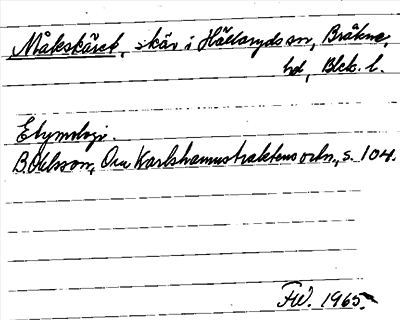 Måkskäret, skär i Hällaryds sn, Bräkne
hd, Blek. l.
Etymologi.
B. Ohlsson, Om Karlshamnstraktens ortn., s. 104.
FW. 1965.